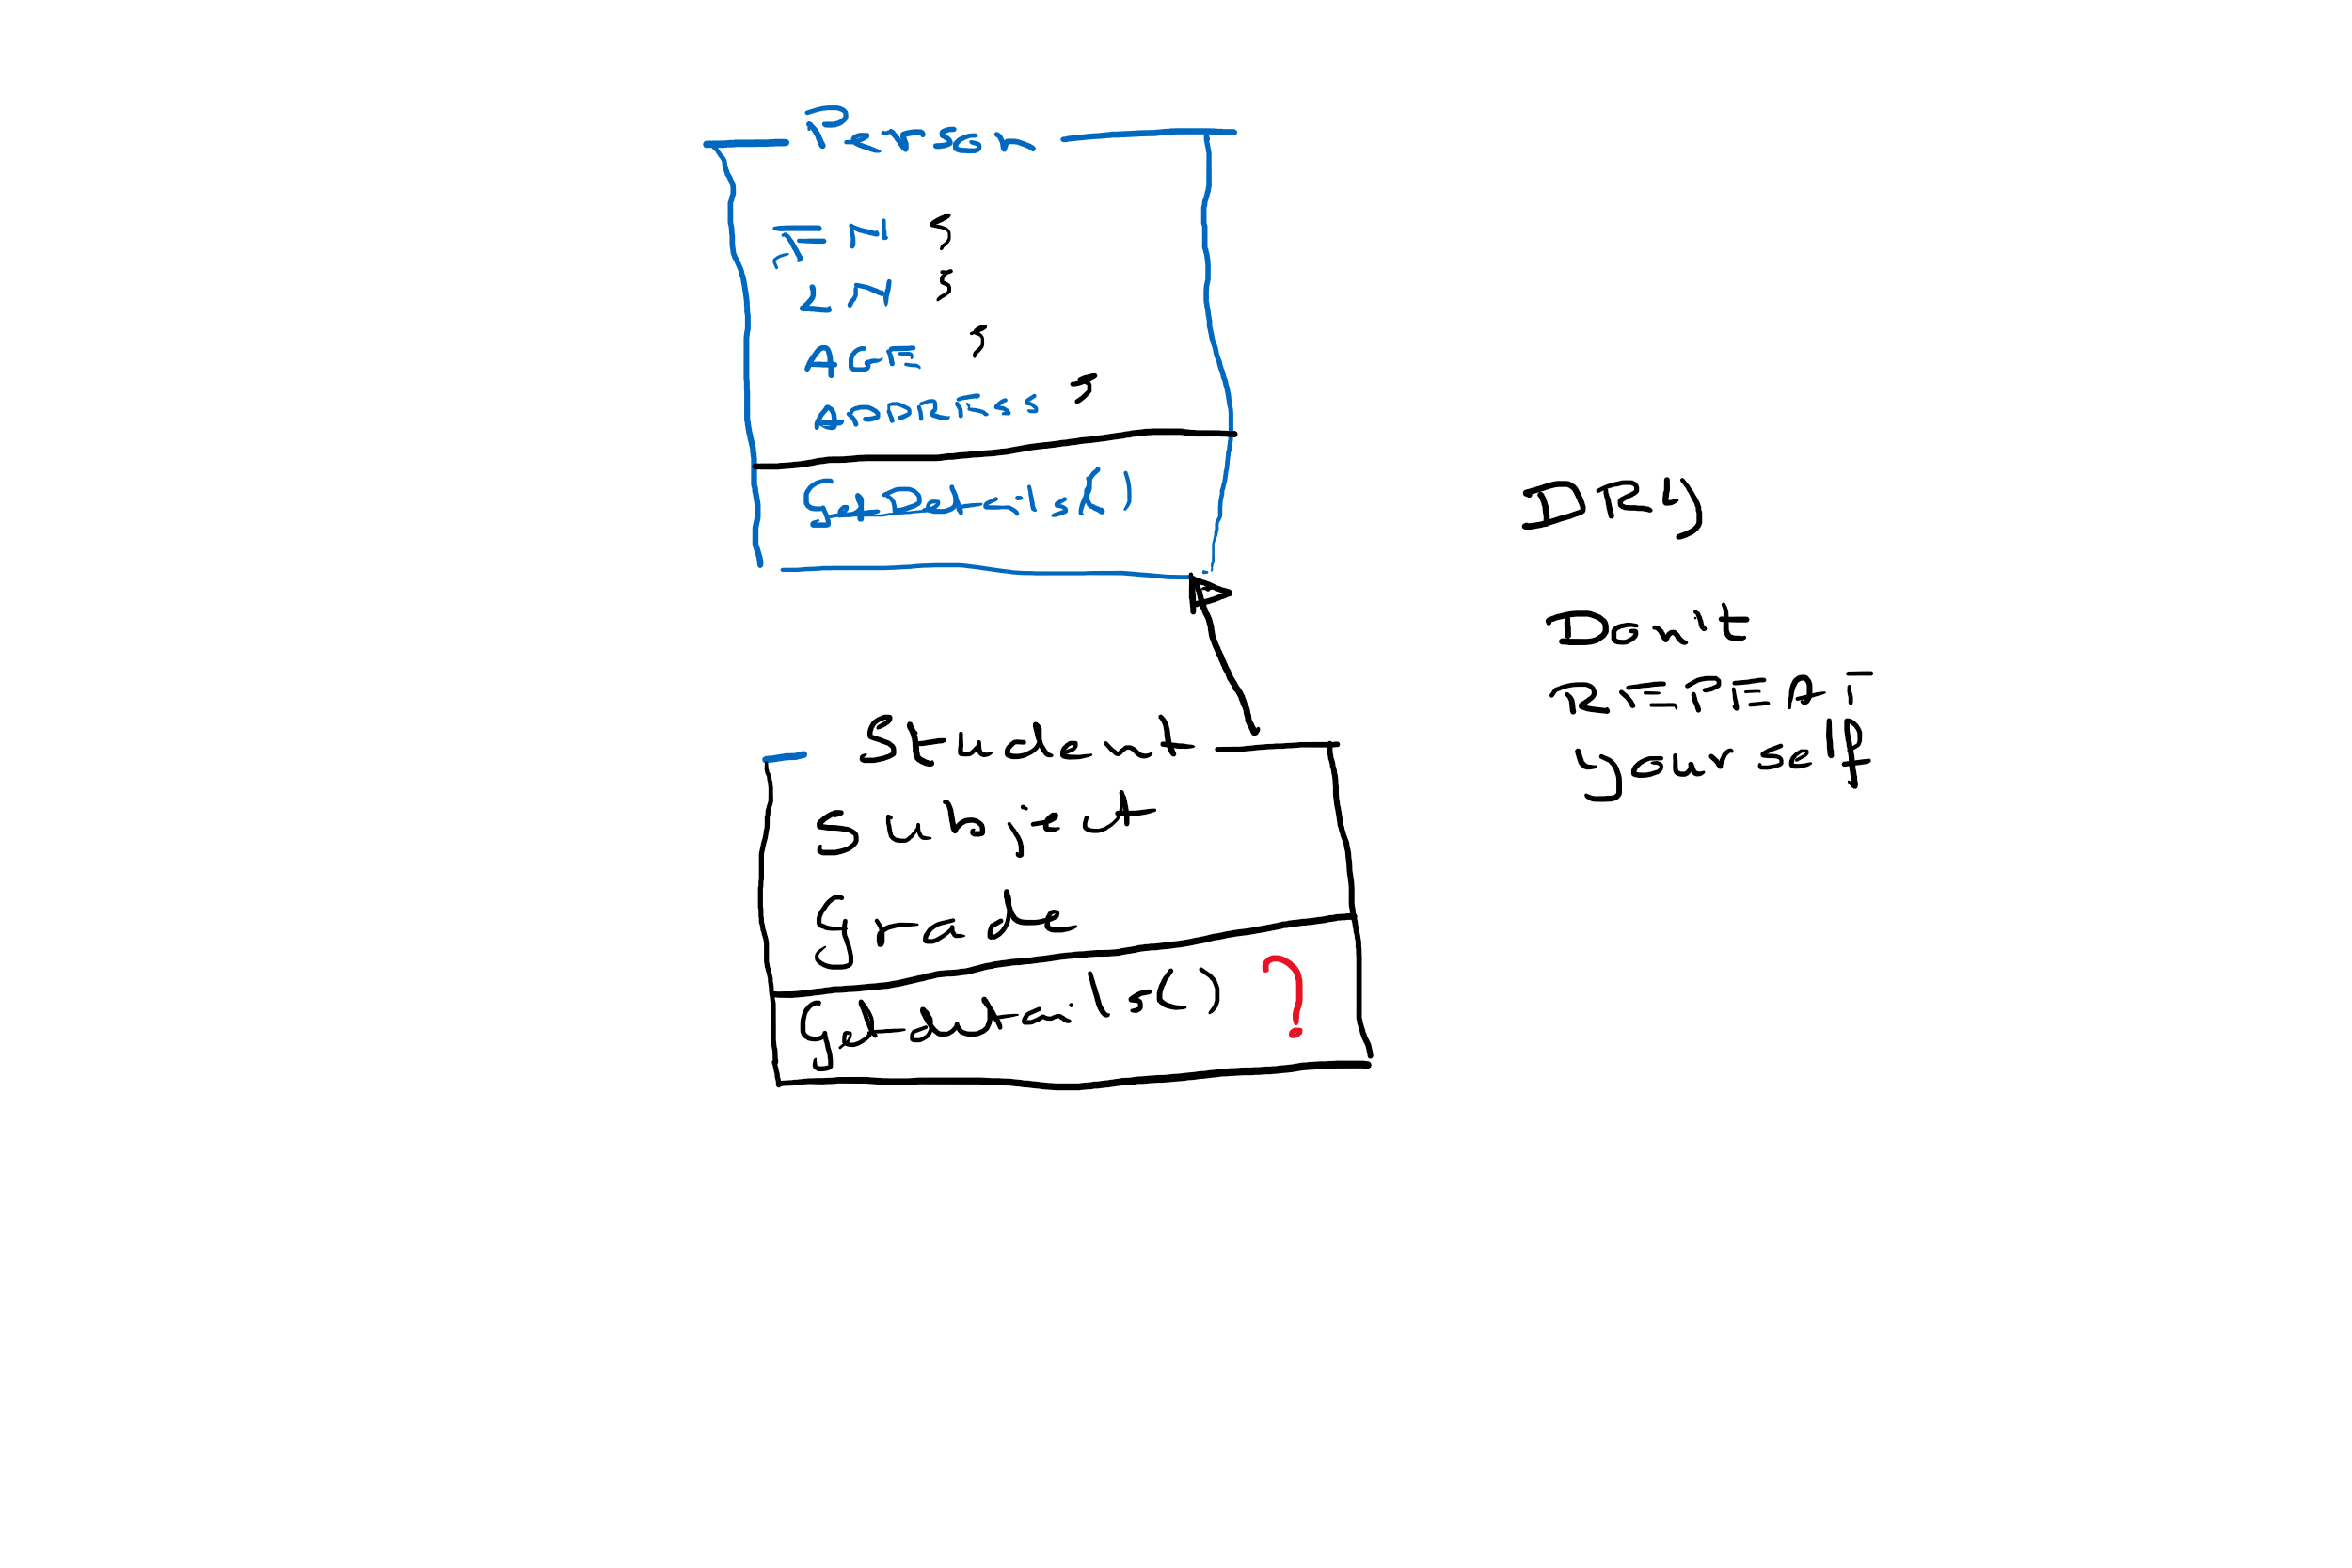 Person
FN ;
LN ;
AGE ;
ADDRESS ;
GetDetails()
Student
Subject
Grade
getdetails() ?
DRY
Don't
REPEAT
yourself